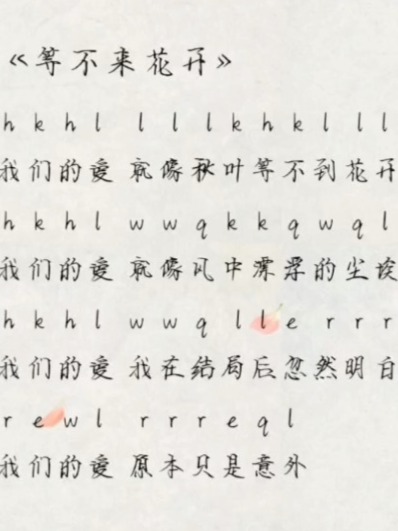 《等不来花开》
h k h l l l l k h k l l l
我们的爱 就像秋叶等不到花开
h k h l w w q k k q w q l
我们的爱 就像风中漂浮的尘埃
h k h l w w q l l e r r r
我们的爱 我在结局后忽然明白
r e w l r r r e q l
我们的爱 原本只是意外